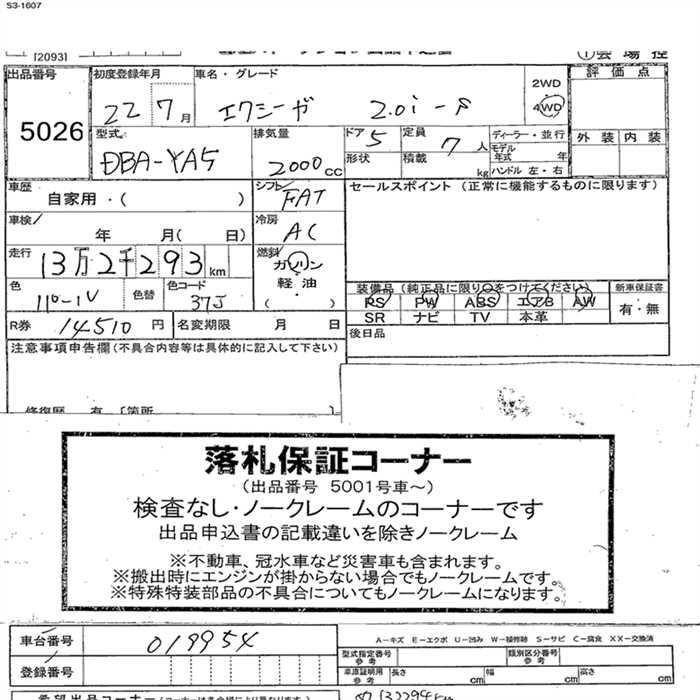 S3-1607
[2093]
①会場控
出品番号
5026
初度登録年月
22 7月
車名・グレード
エクシーガ 2.0i-S
2WD
4WD
評価点
型式
DBA-YA5
排気量
2000cc
ドア 5
形状
定員 7人
積載 kg
ディーラー・並行
モデル年式 年
ハンドル 左・右
外装 内装
車歴
自家用・( )
シフト
FAT
セールスポイント (正常に機能するものに限ります)
車検
年 月( 日)
冷房
AC
走行
13万2千293km
燃料
ガソリン
軽油
( )
色
パールV
色替
色コード
37J
装備品 (純正品に限り○をつけてください)
新車保証書
PS PW ABS エアB AW
有・無
SR ナビ TV 本革
R券 14510円
名変期限 月 日
後日品
注意事項申告欄(不具合内容等は具体的に記入して下さい)
修復歴 有 [箇所
落札保証コーナー
(出品番号 5001号車~)
検査なし・ノークレームのコーナーです
出品申込書の記載違いを除きノークレーム
※不動車、冠水車など災害車も含まれます。
※搬出時にエンジンが掛からない場合でもノークレームです。
※特殊特装部品の不具合についてもノークレームになります。
車台番号
019954
A-キズ E-エクボ U-凹み W-補修跡 S-サビ C-腐食 XX-交換済
型式指定番号 参考
類別区分番号 参考
登録番号
車庫証明用 参考
長さ cm
幅 cm
高さ cm
希望出品コーナー